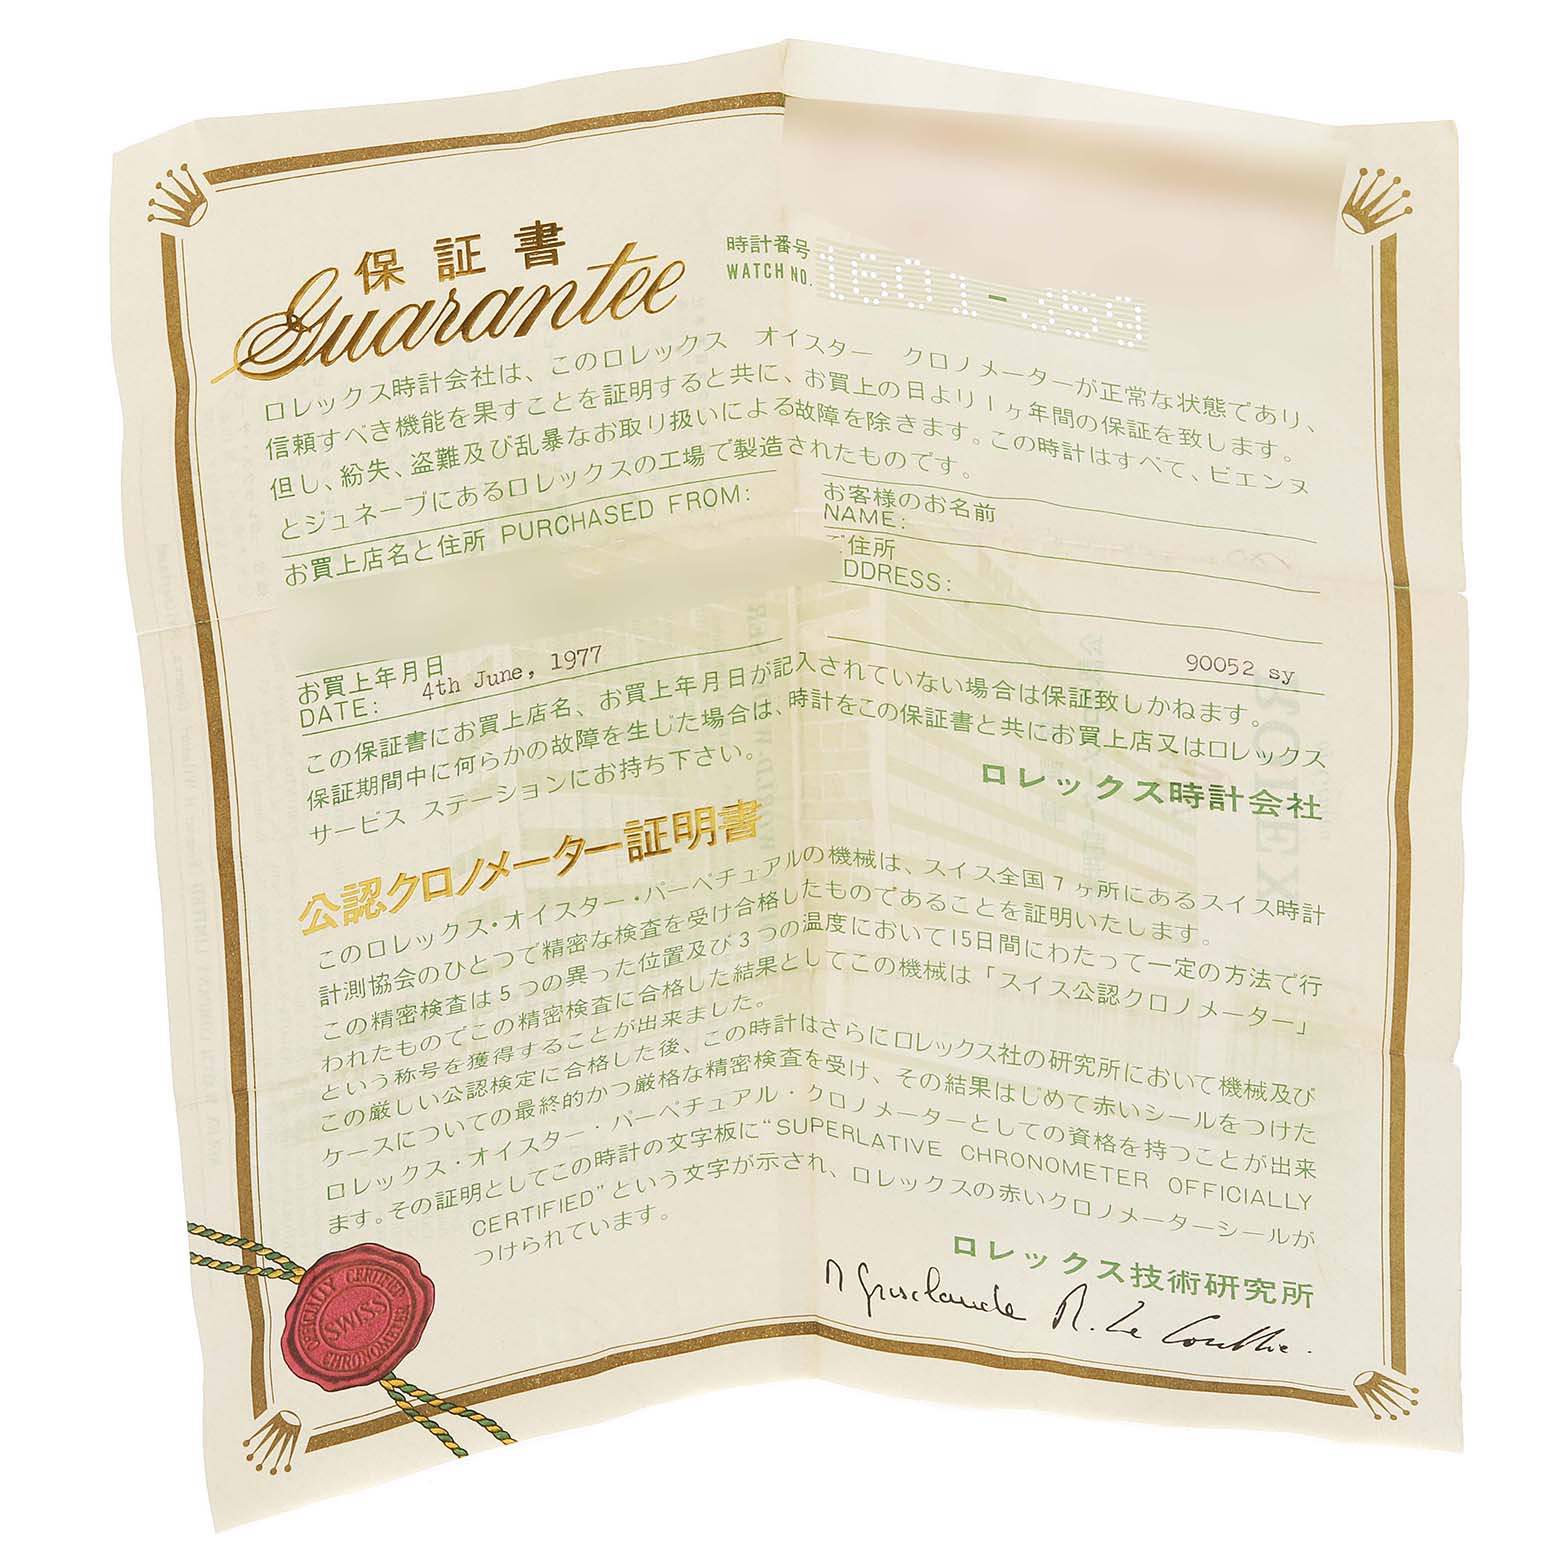 保証書
Guarantee
時計番号
WATCH NO.
1601-
ロレックス時計会社は、このロレックス　オイスター　クロノメーターが正常な状態であり、
信頼すべき機能を果すことを証明すると共に、お買上の日より1ヶ年間の保証を致します。
但し、紛失、盗難及び乱暴なお取り扱いによる故障を除きます。この時計はすべて、ビエンヌ
とジュネーブにあるロレックスの工場で製造されたものです。
お買上店名と住所 PURCHASED FROM:
お客様のお名前
NAME:
住所
DDRESS:
お買上年月日
DATE: 4th June, 1977
90052 sy
この保証書にお買上店名、お買上年月日が記入されていない場合は保証致しかねます。
保証期間中に何らかの故障を生じた場合は、時計をこの保証書と共にお買上店又はロレックス
サービス ステーションにお持ち下さい。
ロレックス時計会社
公認クロノメーター証明書
このロレックス・オイスター・パーペチュアルの機械は、スイス全国7ヶ所にあるスイス時計
計測協会のひとつで精密な検査を受け合格したものであることを証明いたします。
この精密検査は5つの異った位置及び3つの温度において15日間にわたって一定の方法で行
われたものでこの精密検査に合格した結果としてこの機械は「スイス公認クロノメーター」
という称号を獲得することが出来ました。
この厳しい公認検定に合格した後、この時計はさらにロレックス社の研究所において機械及び
ケースについての最終的かつ厳格な精密検査を受け、その結果はじめて赤いシールをつけた
ロレックス・オイスター・パーペチュアル・クロノメーターとしての資格を持つことが出来
ます。その証明としてこの時計の文字板に“SUPERLATIVE CHRONOMETER OFFICIALLY
CERTIFIED”という文字が示され、ロレックスの赤いクロノメーターシールが
つけられています。
ロレックス技術研究所
OFFICIALLY CERTIFIED
SWISS
CHRONOMETER